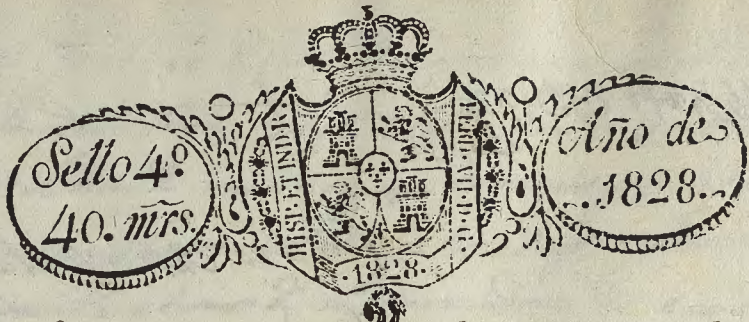 Sello 4º
40. mrs.
HISP. ET IND. R.
FERD. VII. D. G.
Año de
1828.
·1828·